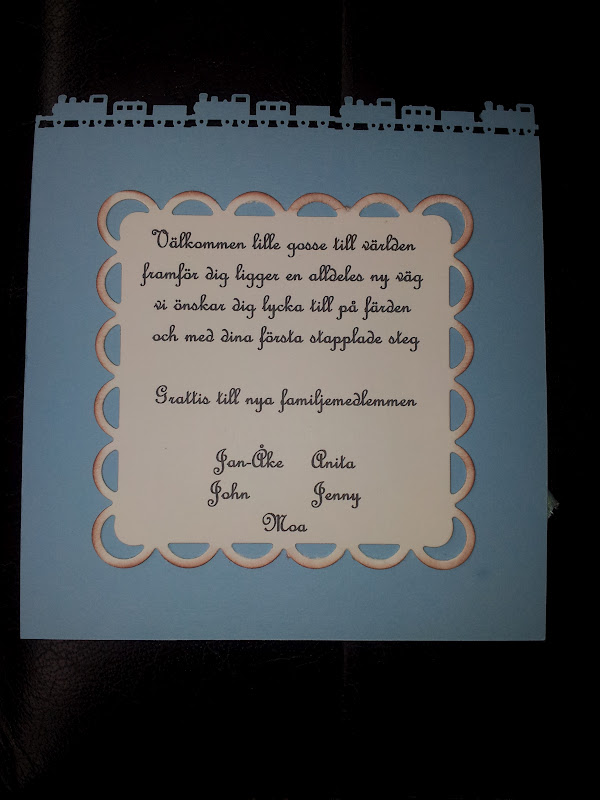 Välkommen lille gosse till världen
framför dig ligger en alldeles ny väg
vi önskar dig lycka till på färden
och med dina första stapplade steg
Grattis till nya familjemedlemmen
Jan-Åke Anita
John Jenny
Moa